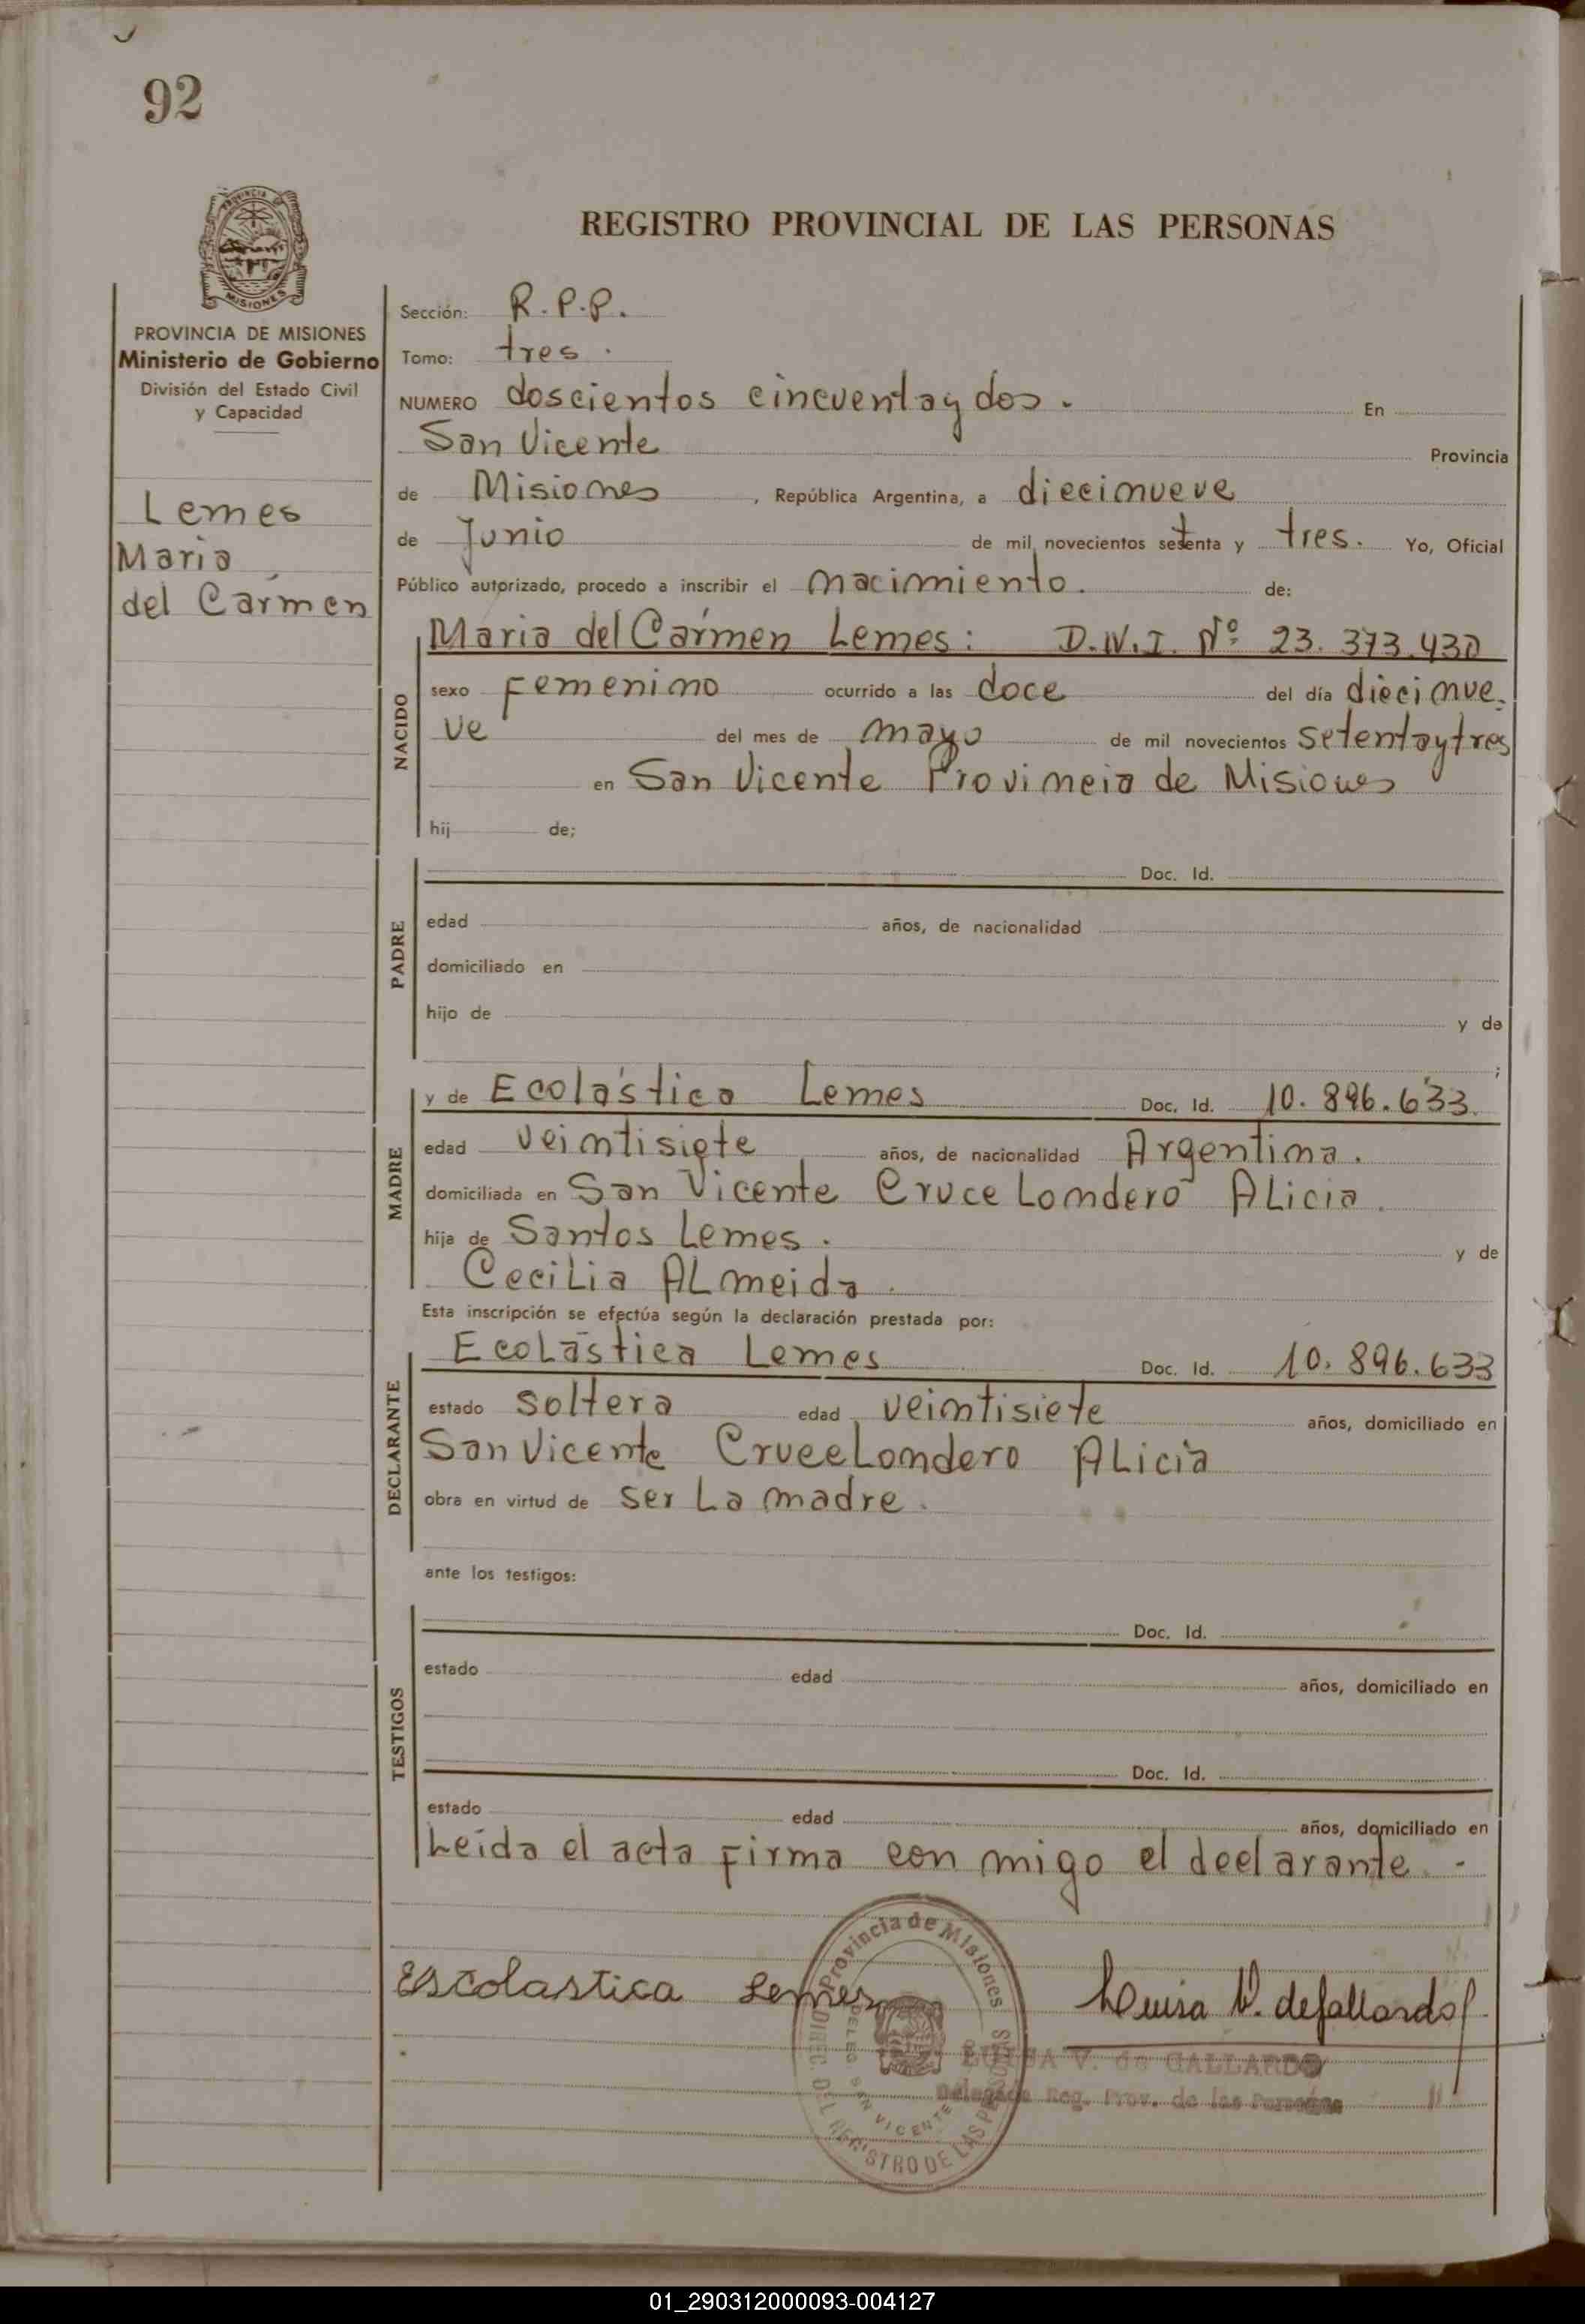 92
PROVINCIA
MISIONES
REGISTRO PROVINCIAL DE LAS PERSONAS
PROVINCIA DE MISIONES
Ministerio de Gobierno
División del Estado Civil
y Capacidad
Lemes
Maria
del Cármen
Sección: R.P.P.
Tomo: tres.
NUMERO doscientos cincuentay dos. En
San Vicente Provincia
de Misiones, República Argentina, a diecinueve
de Junio de mil novecientos setenta y tres. Yo, Oficial
Público autorizado, procedo a inscribir el nacimiento. de:
NACIDO
Maria del Cármen Lemes: D.N.I. Nº 23.373.430
sexo Femenino ocurrido a las doce del día diecinue-
ve del mes de mayo de mil novecientos setentaytres
en San Vicente Provincia de Misiones
hij de;
PADRE
Doc. Id.
edad años, de nacionalidad
domiciliado en
hijo de y de
;
MADRE
y de Ecolástica Lemes Doc. Id. 10.896.633.
edad veintisiete años, de nacionalidad Argentina.
domiciliada en San Vicente Cruce Londero ALicia.
hija de Santos Lemes. y de
CeciLia ALmeida.
Esta inscripción se efectúa según la declaración prestada por:
DECLARANTE
EcoLástica Lemes Doc. Id. 10.896.633
estado soltera edad veintisiete años, domiciliado en
San Vicente CruceLondero ALicia
obra en virtud de ser La madre.
ante los testigos:
TESTIGOS
Doc. Id.
estado edad años, domiciliado en
Doc. Id.
estado edad años, domiciliado en
Leida el acta Firma con migo el declarante.-
Escolastica Lemes Luisa V. de Gallardo
Provincia de Misiones
DIREC. DEL REGISTRO DE LAS PERSONAS
DELEG. SAN VICENTE
LUISA V. de GALLARDO
Delegada Reg. Prov. de las Personas
01_290312000093-004127